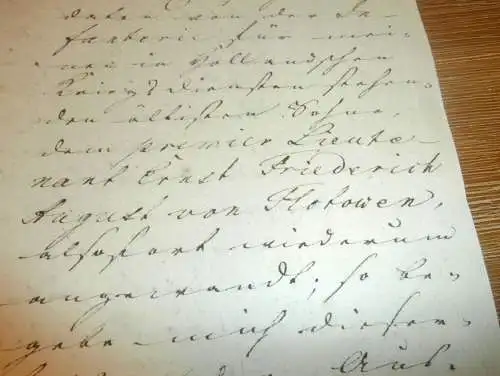 daten von der In-
fanterie für mei-
nen in Holländschen
Kriegsdiensten stehen-
den ältisten Sohne,
dem premier Lieute-
nant Ernst Friederich
August von Flotowen,
alsofort wiederum
angewandt; so be-
gebe mich dieser
Aus-